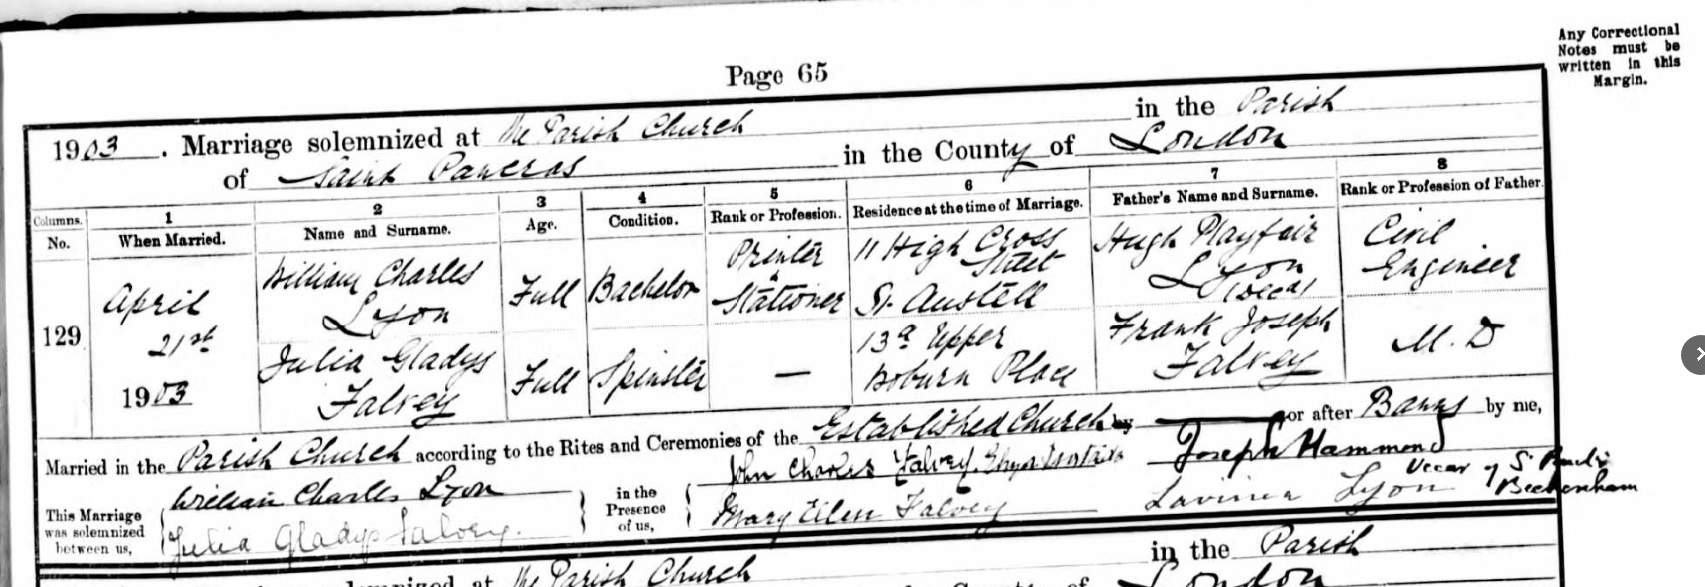 Any Correctional
Notes must be
written in this
Margin.
Page 65
1903. Marriage solemnized at The Parish Church in the Parish
of Saint Pancras in the County of London
Columns. 1 2 3 4 5 6 7 8
No. When Married. Name and Surname. Age. Condition. Rank or Profession. Residence at the time of Marriage. Father's Name and Surname. Rank or Profession of Father.
129
April
21st
1903
William Charles
Lyon
Full
Bachelor
Printer
&
Stationer
11 High Cross
Street
St. Austell
Hugh Playfair
Lyon
(decd)
Civil
Engineer
Julia Gladys
Falvey
Full
Spinster
—
13a Upper
Woburn Place
Frank Joseph
Falvey
M.D
Married in the Parish Church according to the Rites and Ceremonies of the Established Church by or after Banns by me,
This Marriage
was solemnized
between us,
William Charles Lyon
Julia Gladys Falvey.
in the
Presence
of us,
John Charles Falvey
Mary Ellen Falvey
Joseph Hammond
Vicar of St Paul's
Beckenham
Lavinia Lyon
in the Parish
solemnized at The Parish Church
County of London